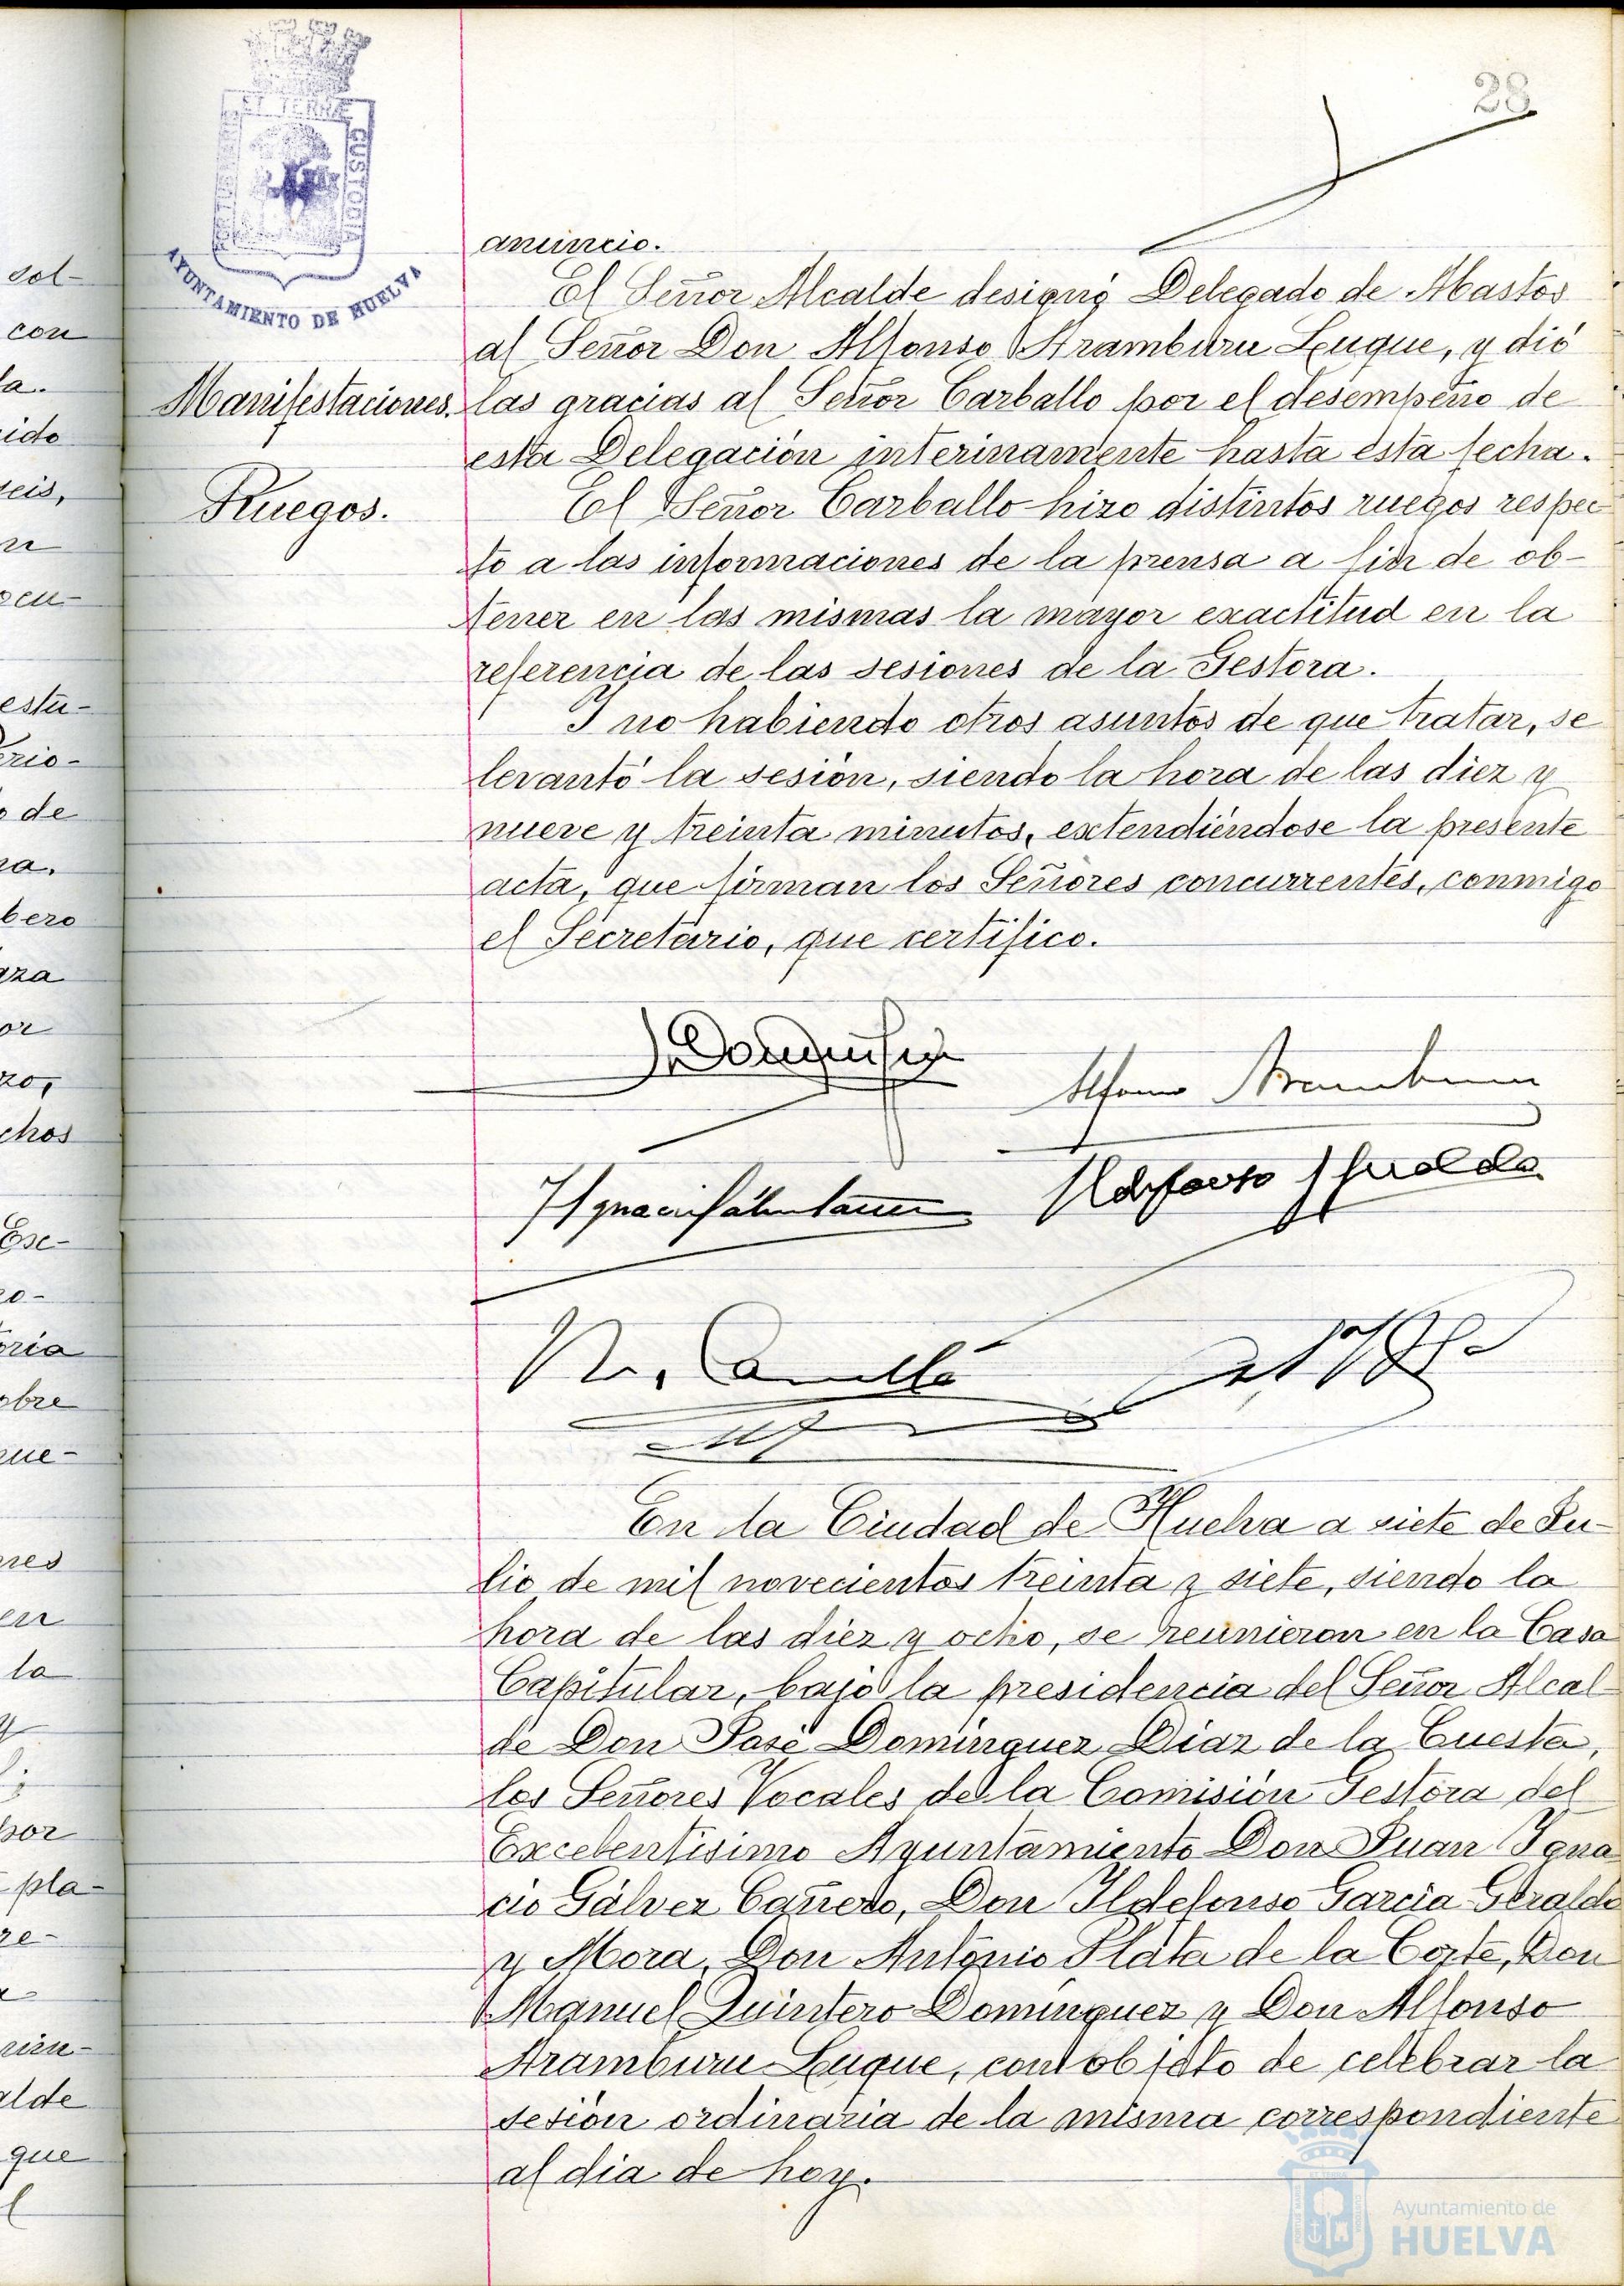 28
ET TERRÆ
CUSTODIA
AYUNTAMIENTO DE HUELVA
anuncio.
El Señor Alcalde designó Delegado de Abastos
al Señor Don Alfonso Aramburu Luque, y dió
Manifestaciones. las gracias al Señor Carballo por el desempeño de
esta Delegación interinamente hasta esta fecha.
Ruegos. El Señor Carballo hizo distintos ruegos respec
to a las informaciones de la prensa a fin de ob-
tener en las mismas la mayor exactitud en la
referencia de las sesiones de la Gestora.
Y no habiendo otros asuntos de que tratar, se
levantó la sesión, siendo la hora de las diez y
nueve y treinta minutos, extendiéndose la presente
acta, que firman los Señores concurrentes, conmigo
el Secretario, que certifico.
Alfonso Aramburu
En la Ciudad de Huelva a siete de Ju-
lio de mil novecientos treinta y siete, siendo la
hora de las diez y ocho, se reunieron en la Casa
Capitular, bajo la presidencia del Señor Alcal-
de Don José Dominguez Diaz de la Cuesta,
los Señores Vocales de la Comisión Gestora del
Excelentisimo Ayuntamiento Don Juan Igna
cio Gálvez Cañero, Don Ildefonso Garcia Geralde
y Mora, Don Antonio Plata de la Corte, Don
Manuel Quintero Dominguez y Don Alfonso
Aramburu Luque, con objeto de celebrar la
sesión ordinaria de la misma correspondiente
al dia de hoy.
Ayuntamiento de
HUELVA
sol-
con
la.
ido
seis,
estu-
rio-
de
chos
Esc-
oria
obre
que-
res
en
la
por
pla-
re-
alde
que